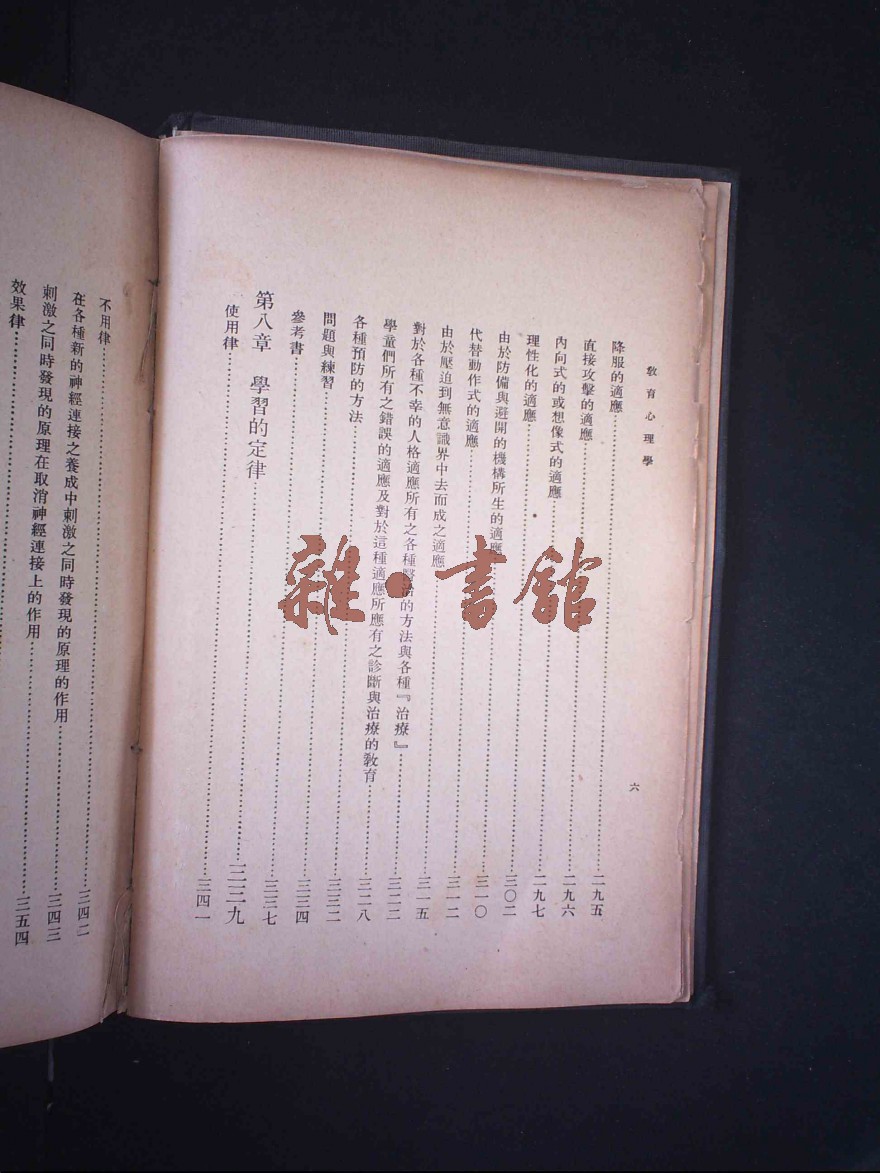 敎育心理學 六
降服的適應 二九五
直接攻擊的適應 二九六
內向式的或想像式的適應 二九七
理性化的適應 三〇二
由於防備與避開的機構所生的適應 三一〇
代替動作式的適應 三一二
由於壓迫到無意識界中去而成之適應 三一五
對於各種不幸的人格適應所有之各種醫治的方法與各種『治療』 三二二
學童們所有之錯誤的適應及對於這種適應所應有之診斷與治療的敎育 三二八
各種預防的方法 三三二
問題與練習 三三四
參考書 三三七
第八章 學習的定律 三三九
使用律 三四一
不用律 三四二
在各種新的神經連接之養成中刺激之同時發現的原理的作用 三四三
刺激之同時發現的原理在取消神經連接上的作用 三五四
效果律
雜·書館